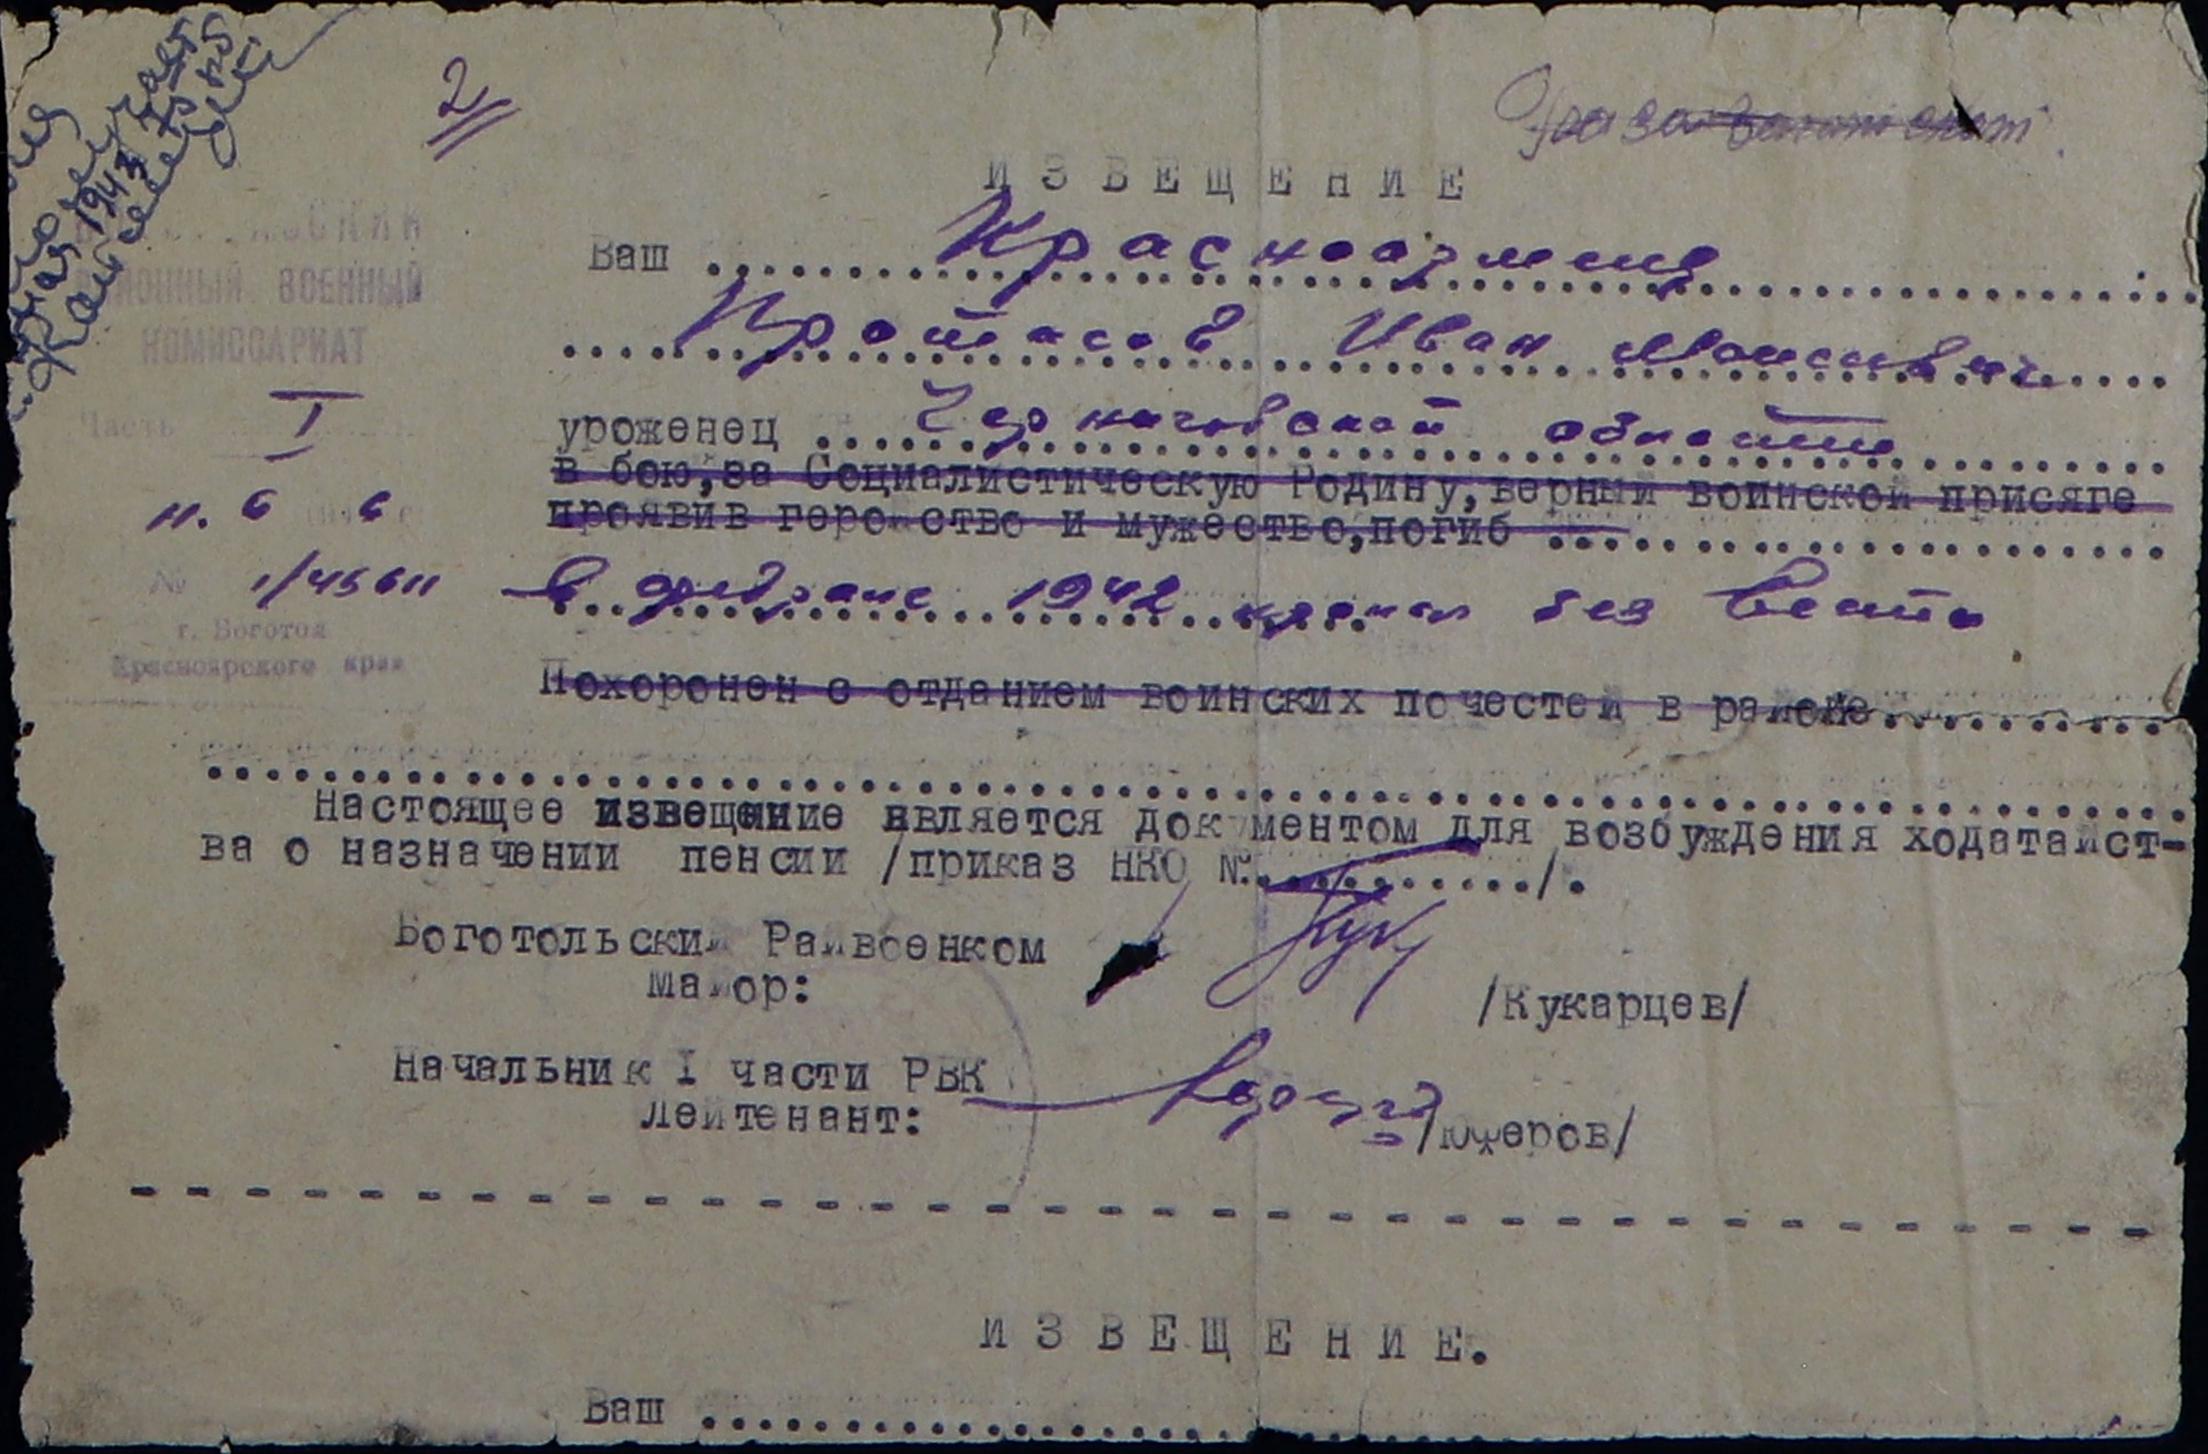 2
ИЗВЕЩЕНИЕ
РАЙОННЫЙ ВОЕННЫЙ
КОМИССАРИАТ
Часть I
11. 6 6
№ 1/45611
г. Боготол
Красноярского края
Ваш ... Красноармеец
Протасов Иван Моисеевич
уроженец ... Черниговской области
в бою, за Социалистическую Родину, верный воинской присяге
проявив геройство и мужество, погиб ...
в феврале 1942 пропал без вести
Похоронен с отданием воинских почестей в районе...
Настоящее извещение является документом для возбуждения ходатайст-
ва о назначении пенсии /приказ НКО №........../.
Боготольский Райвоенком
майор: /Кукарцев/
Начальник I части РВК
лейтенант: /Юферов/
ИЗВЕЩЕНИЕ.
Ваш ...